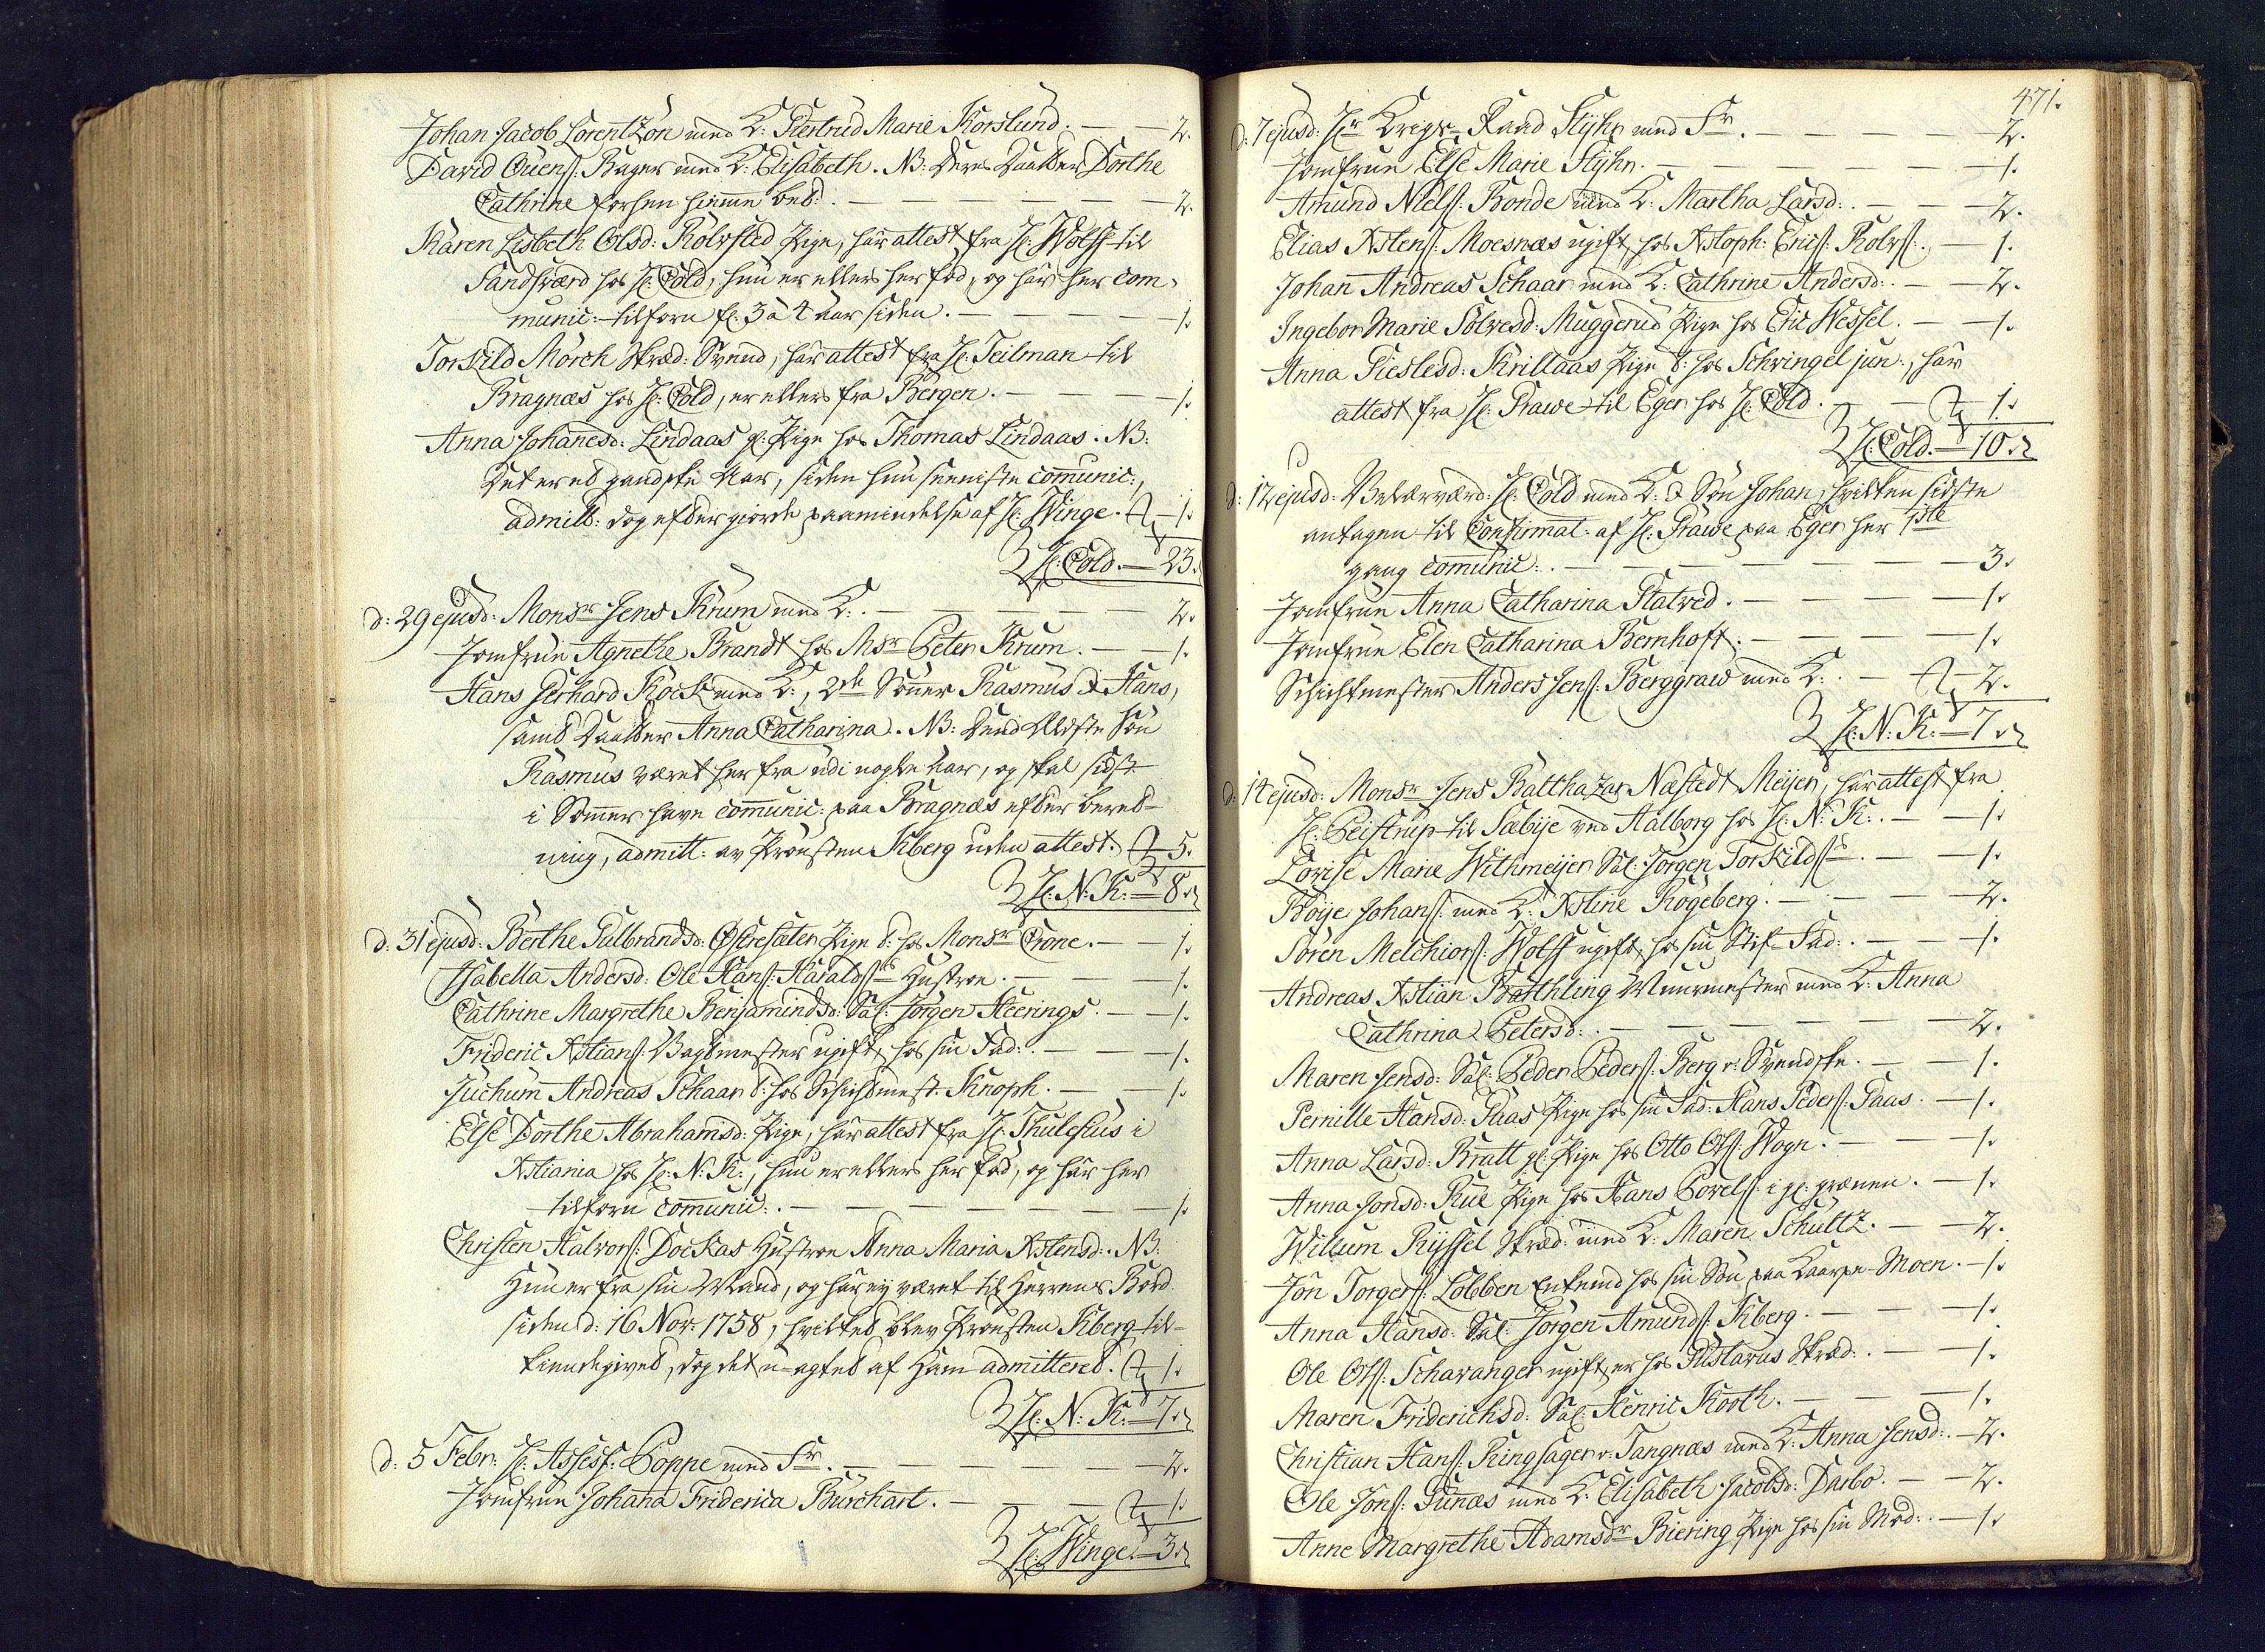 Johan Jacob Lorentzøn med K: Giertrud Marie Korslund. — — 2.
David Ouens: Bager med K: Elisabeth. NB: deres Daatter Dorthe
Cathrine forhen hiemme bet: . — — — — — 2.
Karen Lisbeth Olsd: Rolvsted Pige, har attest fra H: Wolff til
Sandsværd hos H: Cold, hun er ellers her fød, og har her com-
munic: tilforn for 3 à 4 aar siden. — — — — 1.
Torkild Mörch Skræd: Svend, har attest fra H: Teilman til
Bragnæs hos H: Cold, er ellers fra Bergen. — — — 1.
Anna Johanesd: Lindaas gl: Pige hos Thomas Lindaas. NB:
Det er et gandske Aar, siden hun seeniste comunic:,
admitt: dog efter giorde paamindelse af H: Winge. — 1.
H: Cold. — 23.
d: 29 ejusd: Monsr Jens Krum med K: . — — — — 2.
Jomfrue Agnethe Brandt hos Msr Peter Krum. — — 1.
Hans Gerhard Kock med K:, 2de Sønner Rasmus & Hans,
samt Daatter Anna Catharina. NB: Dend Ældste Søn
Rasmus været herfra udi nogle Aar, og skal sidst
i Sommer have comunic: paa Bragnæs efter beret-
ning, admitt: av Prousten Kberg uden attest. — 5.
H: N: K: — 8.
d: 31 ejusd: Berthe Gulbrandsd: Østresæter Pige t: hos Monsr Crone. — — 1.
Isabella Andersd: Ole Hans: Haralds: Hustroe. — — 1.
Cathrine Margrethe Benjamindsd: Sal: Jørgen Heerings. — — 1.
Frideric Xstians: Bagtmester ugift, hos sin Fad: . — — 1.
Juchum Andreas Schaar t: hos Schichtmest: Knoph. — — 1.
Else Dorthe Abrahamsd: Pige, har attest fra H: Thulesius i
Xstiania hos H: N: K:, hun er ellers her fød, og har her
tilforn comunic: . — — — — — — 1.
Christen Halvors: Dockas Hustroe Anna Maria Xstensd: . NB:
Hun er fra sin Mand, og har ey været til Herrens Bord
siden d: 16 Nov: 1758, hvilket blev Prousten Kberg til-
kiendegivet, dog det u-agtet af Ham admitteret. — 1.
H: N: K: — 7.
d: 5 Febr: H: Assess: Poppe med Fr. — — — — 2.
Jomfrue Johana Friderica Burchart. — — — 1.
H: Winge. — 3.
471.
d: 7 ejusd: Hr Krigs-Raad Stÿhr med Fr. — — — — 2.
Jomfrue Else Marie Stÿhr. — — — — 1.
Amund Niels: Bonde med K: Martha Larsd: . — — 2.
Elias Xstens: Moesnæs ugift, hos Xstoph: Erics: Rolvs: . — 1.
Johan Andreas Schaar med K: Cathrine Andersd: . — — 2.
Ingebor Marie Solvesd: Muggerud Pige hos Eric Wessel. — — 1.
Anna Gieslesd: Krillaas Pige t: hos Schwingel jun:, har
attest fra H: Grawe til Eger hos H: Cold. — — 1.
H: Cold. — 10.
d: 12 ejusd: Velærværd: H: Cold med K: & Søn Johan, hvilken sidste
antagen til Confirmat: af H: Grawe paa Eger her 1ste
gang comunic: . — — — — — 3.
Jomfrue Anna Catharina Statved. — — — — 1.
Jomfrue Elen Catharina Bernhoft. — — — — 1.
Schichtmester Anders Jens: Berggraw med K: . — — 2.
H: N: K: — 7.
d: 14 ejusd: Monsr Jens Balthazar Næstedt Meÿer, har attest fra
H: Peistrup til Sæbÿe ved Aalborg hos H: N: K: . — — 1.
Lovise Marie Withmeÿer Sal: Jørgen Torkilds: . — — 1.
Böÿe Johans: med K: Xstine Rogeberg. — — — 2.
Sören Melchiors: Wolff ugift, hos sin Stif-Fad: . — — 1.
Andreas Xstian Barthling Muurmester med K: Anna
Cathrina Petersd: . — — — — — 2.
Maren Jensd: Sal: Peder Peders: Berg v: Svendske. — — 1.
Pernille Hansd: Paas Pige hos sin Fad: Hans Peders: Paas. — 1.
Anna Larsd: Bratt gl: Pige hos Otto Ols: Wogn. — — 1.
Anna Jonsd: Rue Pige hos Hans Povels: i gl: grænen. — 1.
Willum Rÿssel Skræd: med K: Maren Schultz. — — 2.
Jon Torgers: Lobben Enkemd hos sin Søn paa Kaarpe-Moen. — 1.
Anna Hansd: Sal: Jørgen Amunds: Kberg. — — — 1.
Ole Ols: Schavanger ugift, er hos Gustavus Skræd: . — — 1.
Maren Friderichsd: Sal: Henric Kooth. — — — 1.
Christian Hans: Ringsager v: Tangnæs med K: Anna Jensd: . — 2.
Ole Jons: Funæs med K: Elisabeth Jacobsd: Darbo. — — 2.
Anne Margrethe Adamsdr Biering Pige hos sin Mod: . — 1.